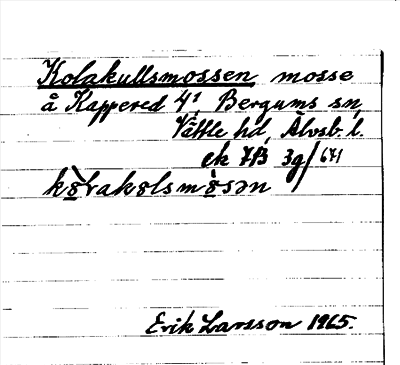 Kolakullsmossen mosse
å Kappered 4¹, Bergums sn,
Vättle hd, Älvsb. l.
ek 7B 3g/641
Erik Larsson 1965.